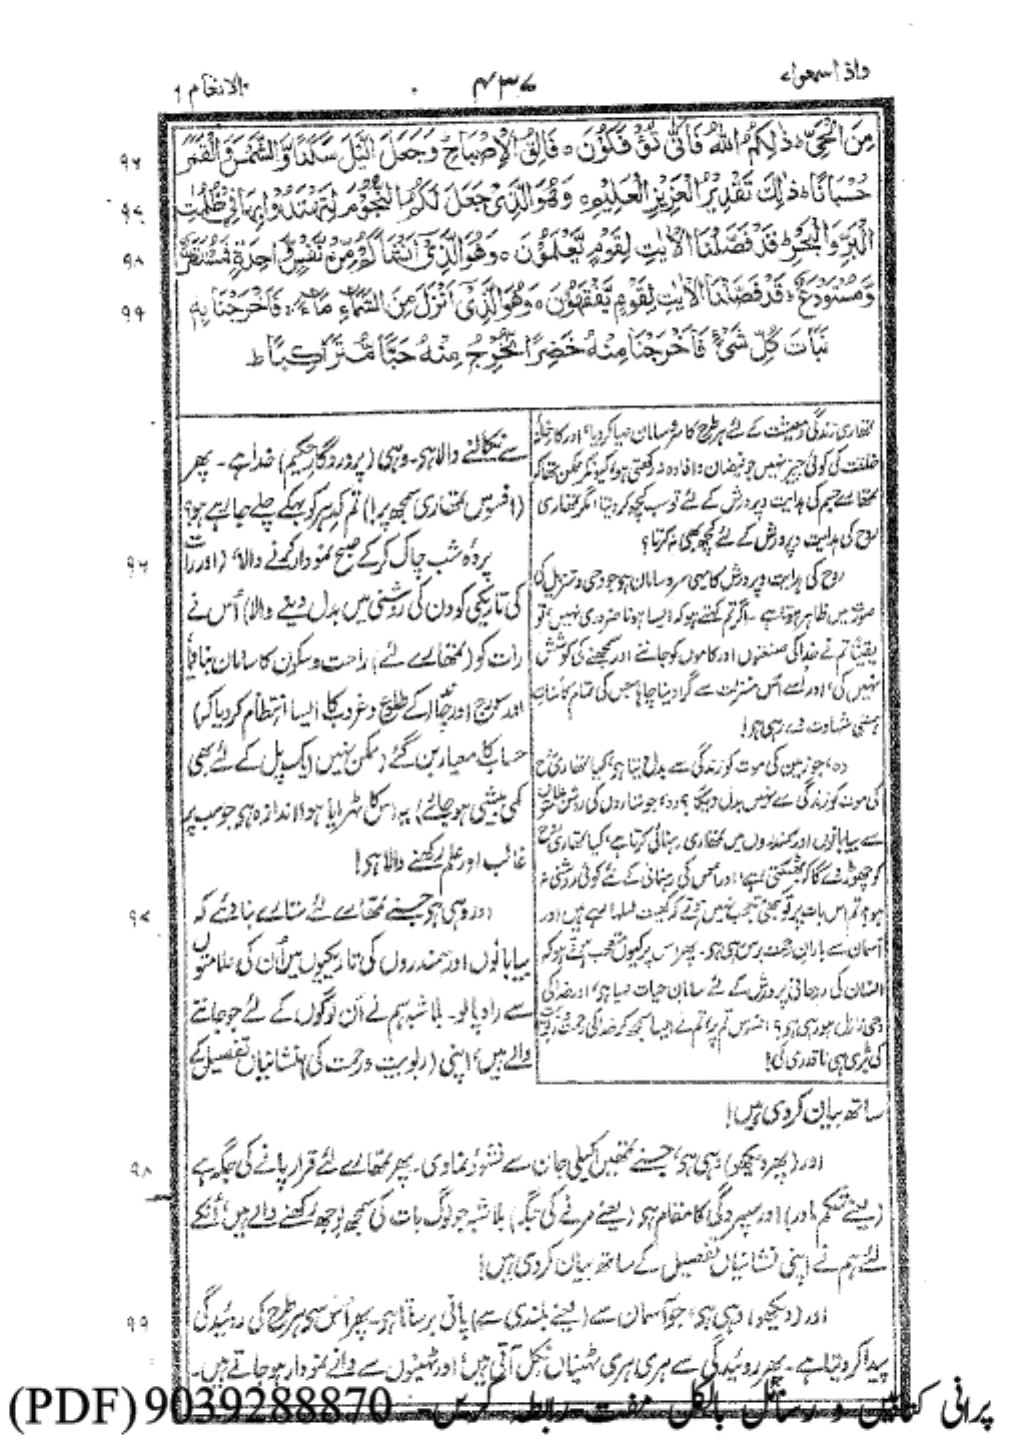 واذا سمعوا ۷
۴۳۷
الانعام ۶
مِنَ الْحَيِّ ؕ ذٰلِكُمُ اللّٰهُ فَاَنّٰى تُؤْفَكُوْنَ ○ فَالِقُ الْاِصْبَاحِ ۚ وَجَعَلَ الَّيْلَ سَكَنًا وَّالشَّمْسَ وَالْقَمَرَ
۹۶
حُسْبَانًا ؕ ذٰلِكَ تَقْدِيْرُ الْعَزِيْزِ الْعَلِيْمِ ○ وَهُوَ الَّذِيْ جَعَلَ لَكُمُ النُّجُوْمَ لِتَهْتَدُوْا بِهَا فِيْ ظُلُمٰتِ
۹۷
الْبَرِّ وَالْبَحْرِ ؕ قَدْ فَصَّلْنَا الْاٰيٰتِ لِقَوْمٍ يَّعْلَمُوْنَ ○ وَهُوَ الَّذِيْٓ اَنْشَاَكُمْ مِّنْ نَّفْسٍ وَّاحِدَةٍ فَمُسْتَقَرٌّ
۹۸
وَّمُسْتَوْدَعٌ ؕ قَدْ فَصَّلْنَا الْاٰيٰتِ لِقَوْمٍ يَّفْقَهُوْنَ ○ وَهُوَ الَّذِيْٓ اَنْزَلَ مِنَ السَّمَآءِ مَآءً ۚ فَاَخْرَجْنَا بِهٖ
۹۹
نَبَاتَ كُلِّ شَيْءٍ فَاَخْرَجْنَا مِنْهُ خَضِرًا نُّخْرِجُ مِنْهُ حَبًّا مُّتَرَاكِبًا ؕ
تمھاری زندگی و معیشت کے لئے ہر طرح کا سروسامان مہیا کردیا، اور کارخانۂ
خلقت کی کوئی چیز نہیں جو فیضان و افادہ نہ رکھتی ہو، کیونکر ممکن تھا کہ
تمھارے جسم کی ہدایت و پرورش کے لئے تو سب کچھ کردیتا، مگر تمھاری
روح کی ہدایت و پرورش کے لئے کچھ بھی نہ کرتا؟
روح کی ہدایت و پرورش کا یہی سروسامان ہے جو وحی و تنزیل کی
صورت میں ظاہر ہوتا ہے۔ اگر تم کہتے ہو کہ ایسا ہونا ضروری نہیں، تو
یقیناً تم نے خدا کی صنعتوں اور کاموں کو جاننے اور سمجھنے کی کوشش
نہیں کی، اور اُسے اُس منزلت سے گرا دینا چاہا جس کی تمام کائنات
ہستی شہادت دے رہی ہے!
وہ، جو زمین کی موت کو زندگی سے بدل دیتا ہے، کیا تمھاری روح
کی موت کو زندگی سے نہیں بدل دیگا؟ وہ، جو ستاروں کی روشن علامتوں
سے بیابانوں اور سمندروں میں تمھاری رہنمائی کرتا ہے، کیا تمھاری روح
کو چھوڑ دے گا کہ بھٹکتی رہے، اور اُس کی رہنمائی کے لئے کوئی روشنی نہ
ہو؟ تم اس بات پر تو کبھی تعجب نہیں کرتے کہ کھیت لہلہا رہے ہیں اور
آسمان سے باران رحمت برس رہی ہے۔ پھر اس پر کیوں تعجب کرتے ہو کہ
انسان کی روحانی پرورش کے لئے سامان حیات مہیا ہے، اور خدا کی
وحی نازل ہو رہی ہے؟ افسوس تم پر! تم نے ایسا سمجھ کر خدا کی رحمت و ربوبیت
کی بڑی ہی ناقدری کی!
سے نکالنے والا ہے۔ وہی (پروردگار حکیم) خدا ہے۔ پھر
(افسوس تمھاری سمجھ پر!) تم کدھر کو بہکے چلے جا رہے ہو؟
پردۂ شب چاک کرکے صبح نمودار کرنے والا، (اور رات
۹۶
کی تاریکی کو دن کی روشنی میں بدل دینے والا) اُس نے
رات کو (تمھارے لئے) راحت و سکون کا سامان بنا دیا
اور سورج اور چاند کے طلوع و غروب کا ایسا انتظام کردیا کہ)
حساب کا معیار بن گئے (ممکن نہیں ایک پل کے لئے بھی
کمی بیشی ہو جائے) یہ اُس کا ٹھہرایا ہوا اندازہ ہے جو سب پر
غالب اور علم رکھنے والا ہے!
اور وہی ہے جسنے تمھارے لئے ستارے بنا دئے کہ
۹۷
بیابانوں اور سمندروں کی تاریکیوں میں اُن کی علامتوں
سے راہ پا لو۔ بلا شبہ ہم نے اُن لوگوں کے لئے جو جاننے
والے ہیں، اپنی (ربوبیت و رحمت کی) نشانیاں تفصیل کے
ساتھ بیان کردی ہیں!
اور (پھر دیکھو) وہی ہے، جسنے تمھیں اکیلی جان سے نشوونما دی۔ پھر تمھارے لئے قرار پانے کی جگہ ہے
۹۸
(یعنے شکم مادر) اور سپردگی کا مقام ہے (یعنے مرنے کی جگہ) بلا شبہ جو لوگ بات کی سمجھ بوجھ رکھنے والے ہیں، اُنکے
لئے ہم نے اپنی نشانیاں تفصیل کے ساتھ بیان کردی ہیں!
اور (دیکھو) وہی ہے، جو آسمان سے (یعنے بلندی سے) پانی برساتا ہے۔ پھر اُس سے ہر طرح کی روئیدگی
۹۹
پیدا کردیتا ہے۔ پھر روئیدگی سے ہری ہری ٹہنیاں نکل آتی ہیں، اور ٹہنیوں سے دانے نمودار ہو جاتے ہیں۔
پرانی کتابیں و رسائل بالکل مفت رابطہ کریں۔ 9039288870 (PDF)